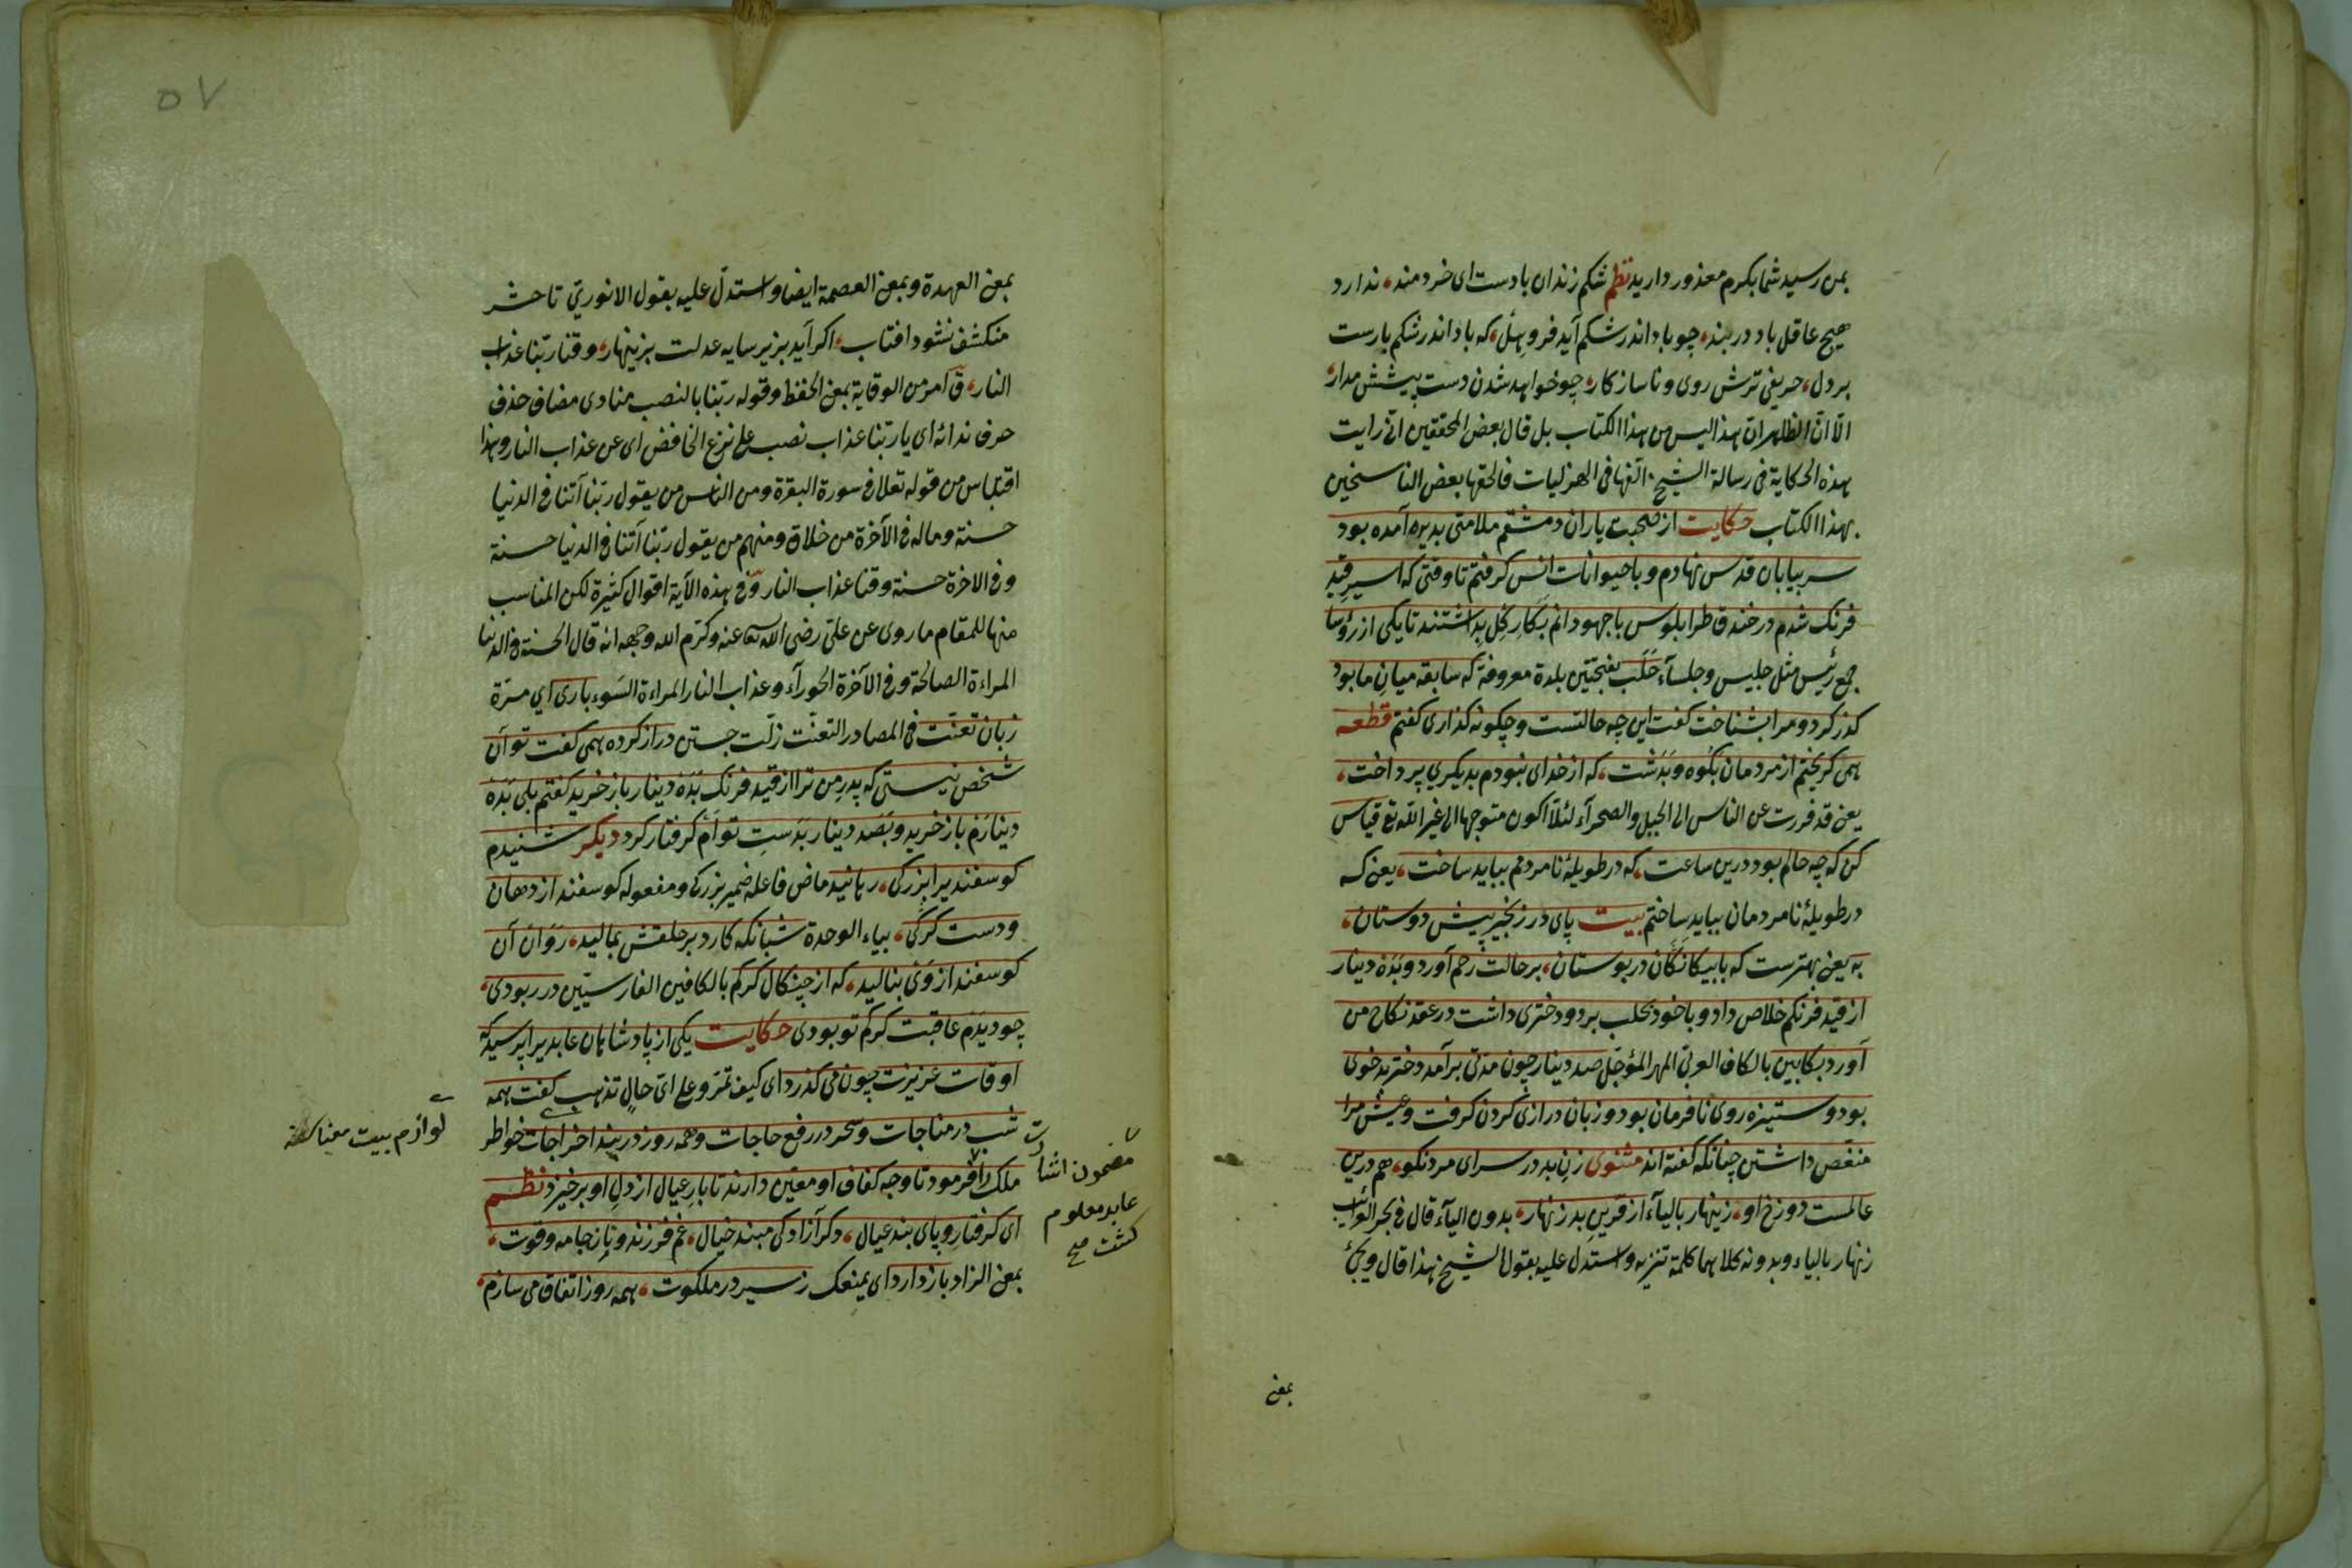 بمن رسید شما بکرم معذور دارید نظم شکم زندان بادست ای خردمند، ندارد
هیچ عاقل باد در بند، چو باد اندر شکم آید فروهل، که باد اندر شکم بارست
بر دل، حریفی ترش روی و ناساز کار، چو خواهد شدن دست پیشش مدار،
الا ان الظاهر ان هذا لیس من هذا الکتاب بل قال بعض المحققین انی رایت
هذه الحکایة فی رسالة الشیخ الفها فی الهزلیات فالحقها بعض الناسخین
بهذا الکتاب حکایت از صحبت یاران دمشقم ملامتی بدیره آمده بود
سر بیابان قدس نهادم و با حیوانات انس کرفتم تا وقتی که اسیر قید
فرنک شدم در خندق طرابلوس با جهودانم بکار کل بداشتند تا یکی از رؤسا
جمع رئیس مثل جلیس وجلساء حلب بفتحتین بلدة معروفة که سابقه میان ما بود
کذر کرد و مرا بشناخت کفت این چه حالتست و چکونه کذاری کفتم قطعه
همی کریختم از مردمان بکوه و بدشت، که از خدای نبودم بدیکری پرداخت،
یعنی قد فررت عن الناس الی الجبل والصحرآء لئلا اکون متوجها الی غیر الله تع قیاس
کن که چه حالم بود درین ساعت، که در طویلۀ نامردمم بباید ساخت، یعنی که
در طویلۀ نامردمان بباید ساختم بیت پای در زنجیر پیش دوستان،
به یعنی بهترست که با بیکانکان در بوستان، بر حالت رحم آورد و بده دینار
از قید فرنکم خلاص داد و با خود بحلب برد و دختری داشت در عقد نکاح من
آورد بکابین بالکاف العربی المهر المؤجل صد دینار چون مدتی برآمد دختر بدخوی
بود و ستیزه روی نافرمان بود و زبان درازی کردن کرفت وعیش مرا
منغص داشتن چنانکه کفته اند مثنوی زن بد در سرای مرد نکو، هم درین
عالمست دوزخ او، زینهار بالیآء از قرین بد زنهار، بدون الیآء قال فی بحر الغرائب
زنهار بالیاء و بدونه کلاهما کلمة تنزیه و استدل علیه بقول الشیخ هذا قال ویجئ
بمعنی
بمعنی العهدة و بمعنی العصمة ایضا و استدل علیه بقول الانوری تا حشر
منکشف نشود افتاب، اکر آید بزیر سایه عدلت بزینهار، وقنا ربنا عذاب
النار، ق امر من الوقایة بمعنی الحفظ وقوله ربنا بالنصب منادی مضاف حذف
حرف ندائه ای یا ربنا عذاب نصب علی نزع الخافض ای عن عذاب النار وهذا
اقتباس من قوله تعالی فی سورة البقرة ومن الناس من یقول ربنا آتنا فی الدنیا
حسنة وماله فی الآخرة من خلاق ومنهم من یقول ربنا آتنا فی الدنیا حسنة
وفی الاخرة حسنة وقنا عذاب النار وفی هذه الآیة اقوال کثیرة لکن المناسب
منها للمقام ما روی عن علی رضی الله تعالی عنه وکرم الله وجهه انه قال الحسنة فی الدنیا
المراءة الصالحة وفی الآخرة الحورآء وعذاب النار المراءة السوء باری ای مرّة
زبان تعنت فی المصادر التعنت زلت جستن دراز کرده همی کفت تو آن
شخص نیستی که پدر من ترا از قید فرنک بده دینار باز خرید کفتم بلی بده
دینارم باز خرید و بصد دینار بدست توأم کرفتار کرد دیکر شنیدم
کوسفندی را بزرکی، رهانید ماض فاعله ضمیر بزرکی ومفعوله کوسفند از دهان
ودست کرکی، بیاء الوحدة شبانکه کارد بر حلقش بمالید، روان آن
کوسفند از وی بنالید، که از چنکال کرکم بالکافین الفارسیّین در ربودی،
چو دیدم عاقبت کرکم تو بودی حکایت یکی از پادشاهان عابدی را پرسید که
اوقات عزیزت چون می کذرد ای کیف تمرّ وعلی ای حالٍ تذهب کفت همه
شب در مناجات و سحر در رفع حاجات و همه روز در بند اخراجات خواطر
لوازم بیت معناسنه
مضمون اشارت
عابد معلوم
کشت صح
ملک را فرمود تا وجه کفاف او معین دارند تا بار عیال از دل او برخیزد نظم
ای کرفتار و پای بند عیال، دکر آزادکی مبند خیال، غم فرزند و نان و جامه و قوت،
بمعنی الزاد باز دارد ای یمنعک ز سیر در ملکوت، همه روز اتفاق می سازم،
۵۷